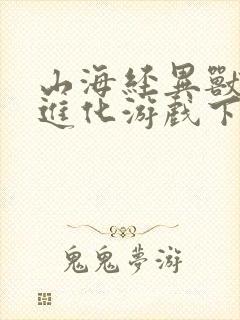 山海經異獸
進化游戲下
鬼鬼夢游